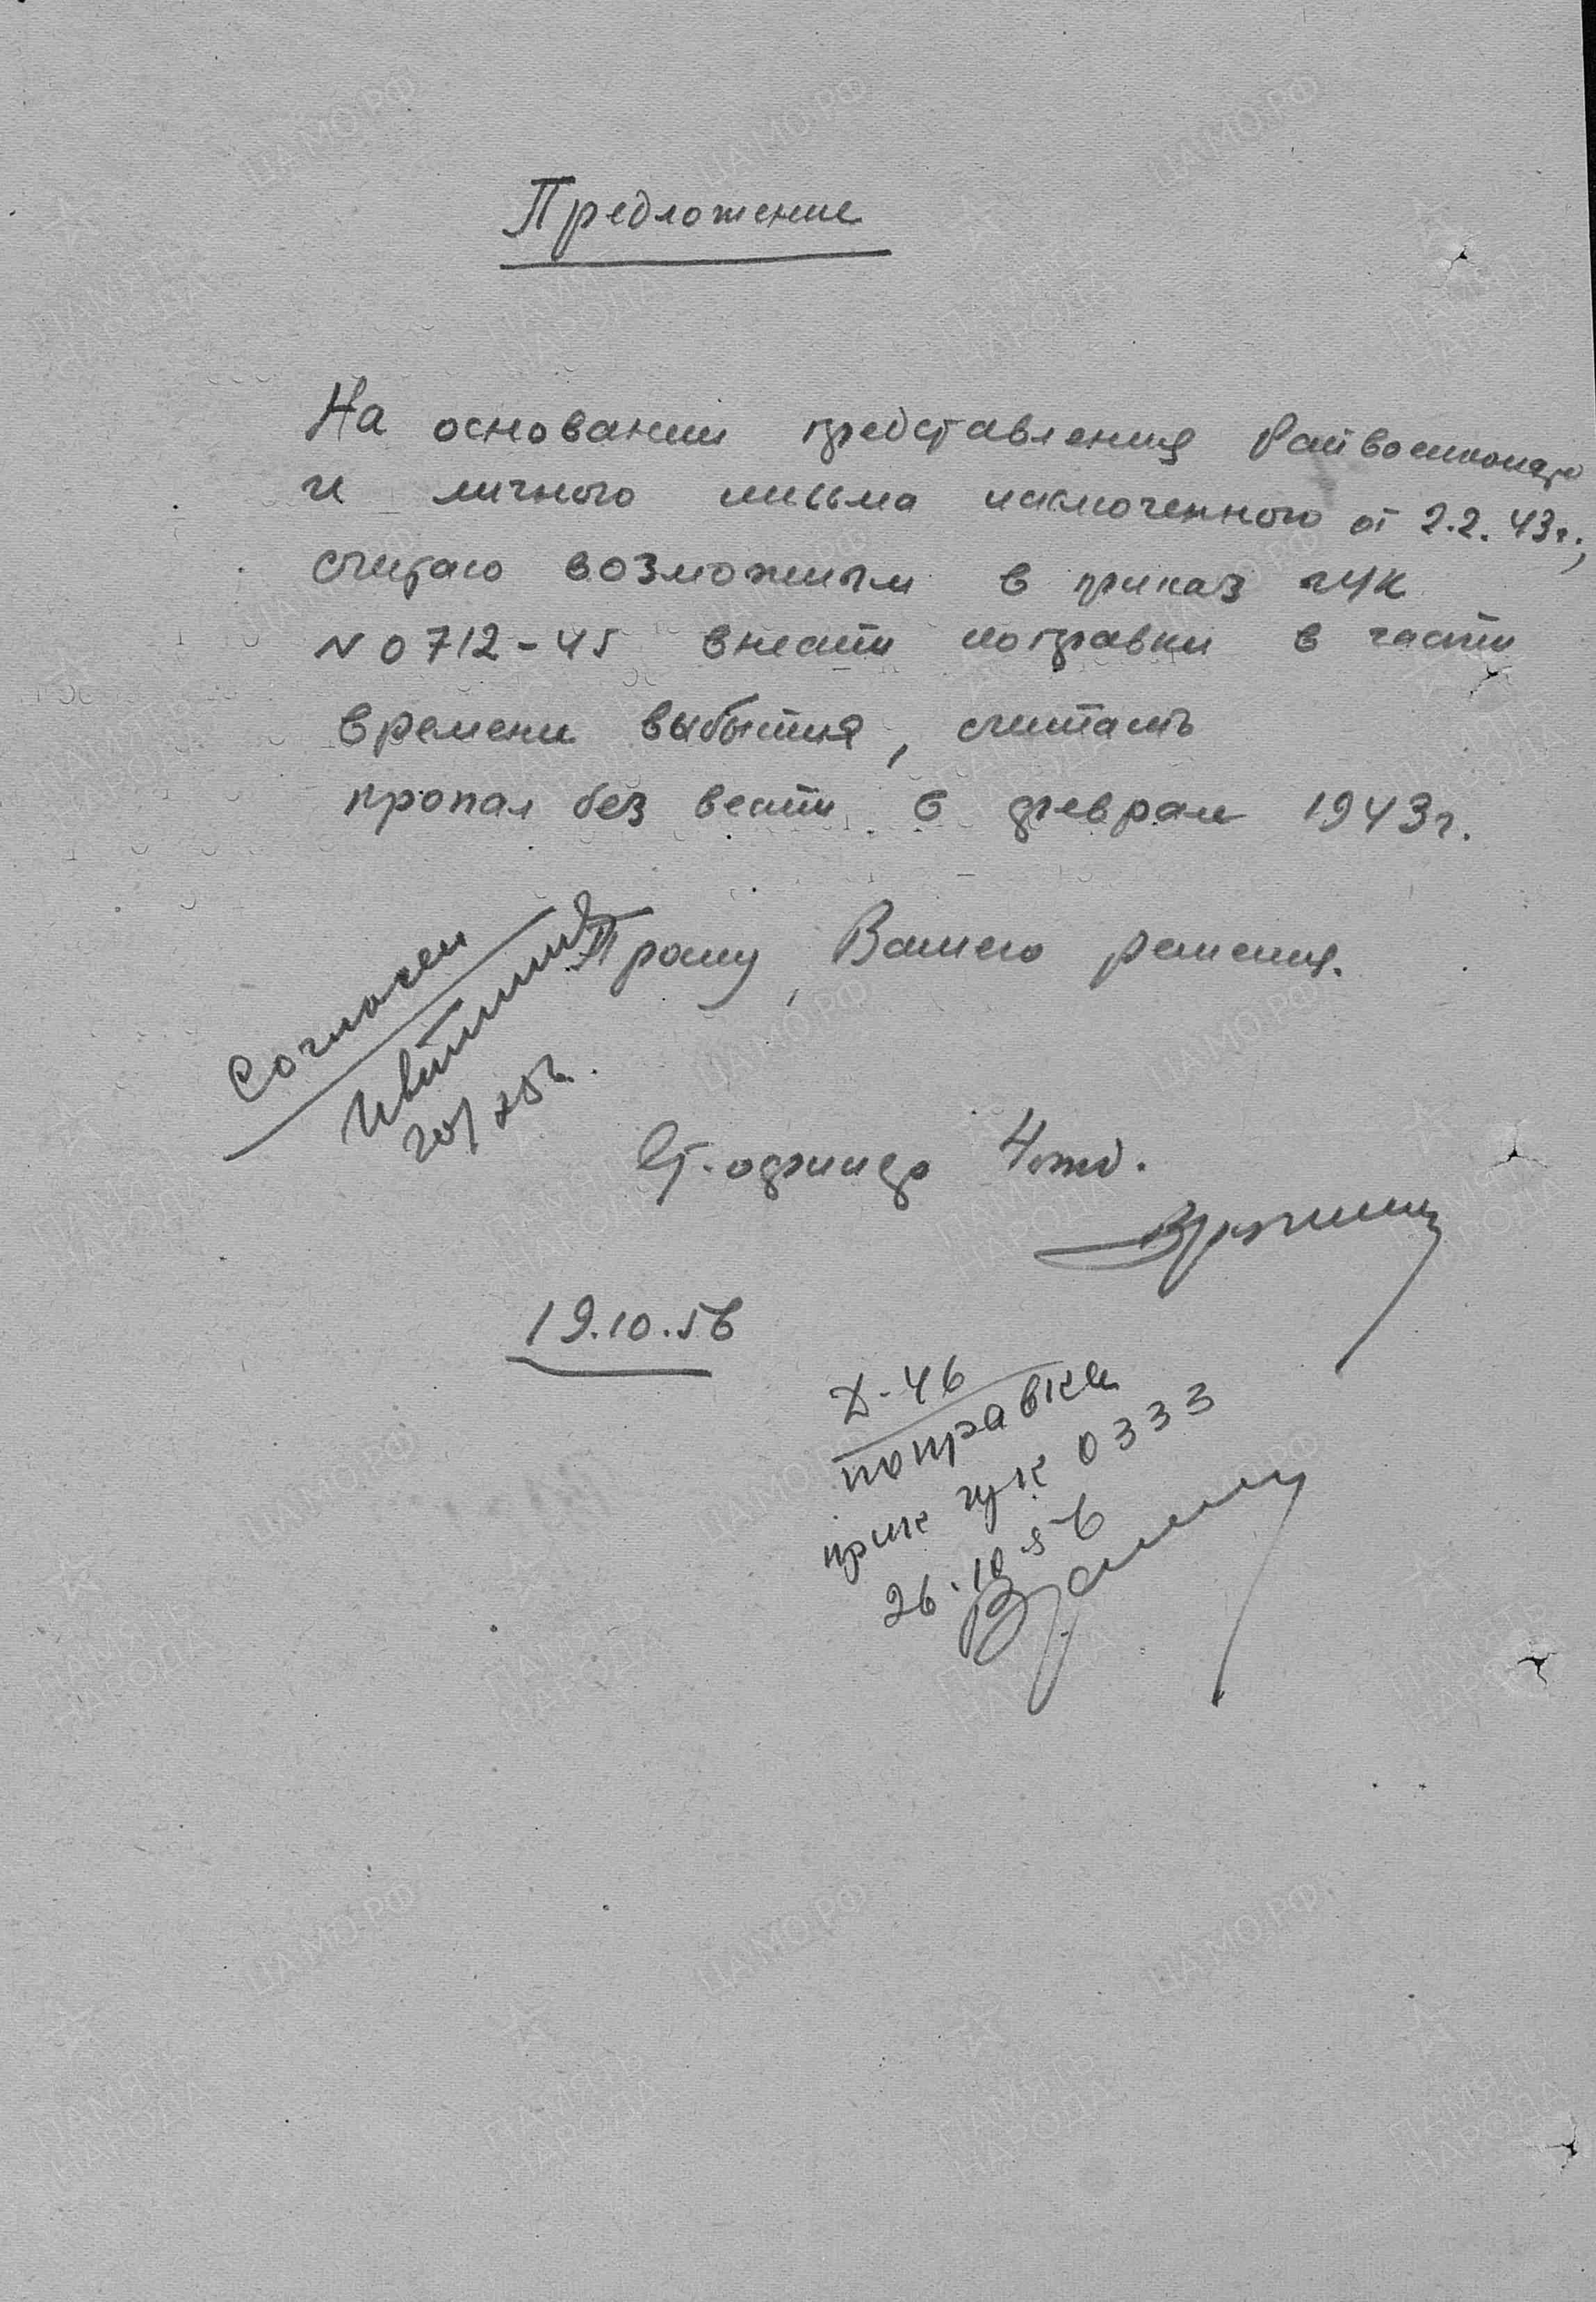 Предложение
На основании представления Райвоенкомата
и личного письма исключенного от 2.2.43г.,
считаю возможным в приказ ГУК
N 0712-45 внести поправки в части
времени выбытия, считать
пропал без вести в феврале 1943г.
Прошу Вашего решения.
Согласен
20/X 56.
Ст. офицер 4 отд.
19.10.56
Д-46
поправка
прик гук 0333
26.10.56